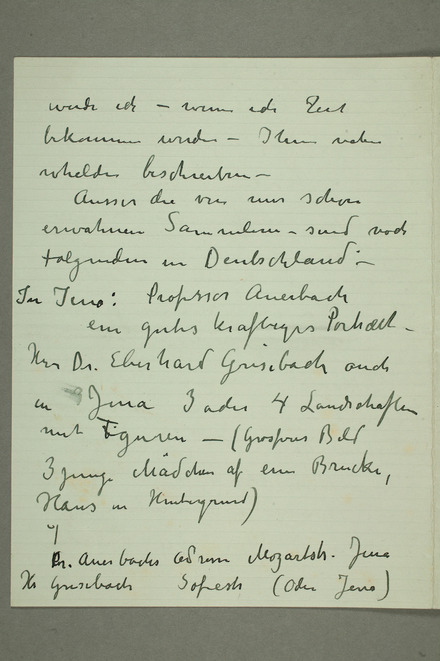 werde ich – wenn ich Zeit
bekommen werde – Ihnen
beschreiben –
Ausser die von mir schon
erwähnen Sammlern – sind noch
folgenden in Deutschland: –
In Jena: Professor Auerbach
ein gutes kräftiges Porträt –
Herr Dr. Eberhard Grisebach auch
in Jena 3 oder 4 Landschaften
mit Figuren – (Grosses Bild
3 junge Mädchen af ein Brücke,
Haus in Hintergrund)
Dr. Auerbachs Adresse Mozartstr. Jena
Hr Grisebach (Oder Jena)